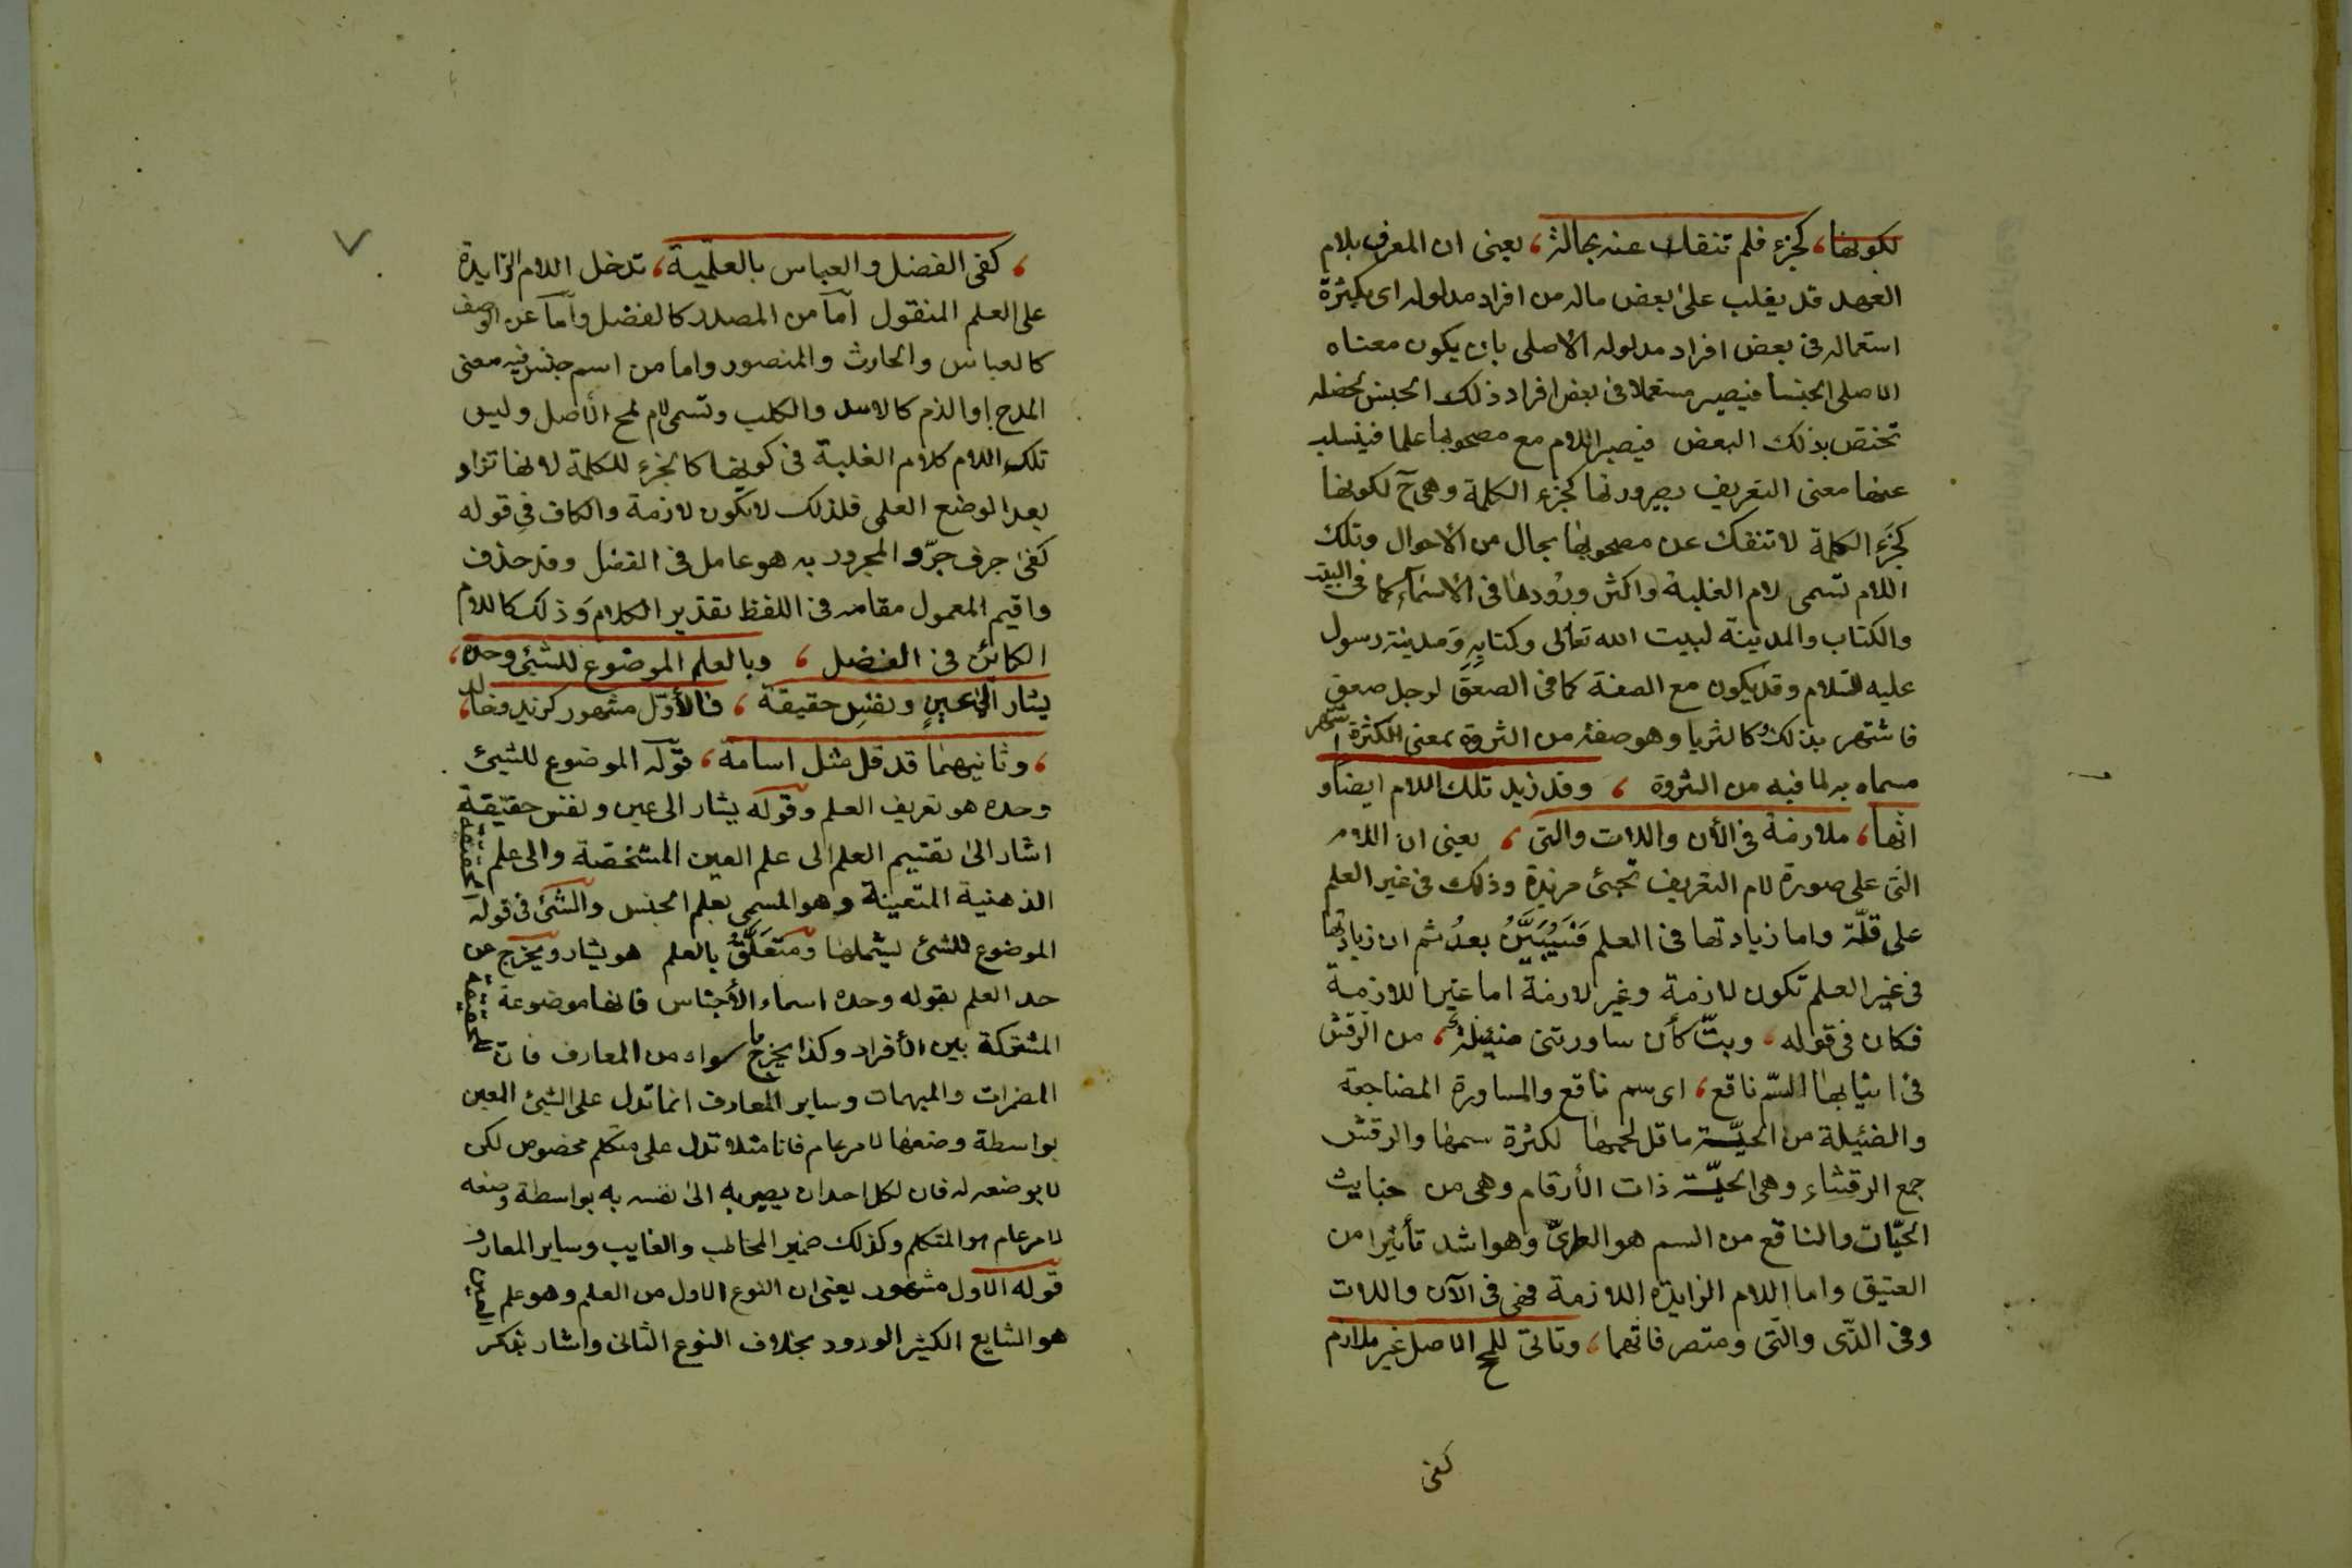 لكونها، كجزء فلم تنفك عنه بحالة، يعنى ان المعرف بلام
العهد قد يغلب على بعض ماله من افراد مدلوله اى بكثرة
استعماله فى بعض افراد مدلوله الاصلى بان يكون معناه
الاصلى الجنسا فيصير مستعملا فى بعض افراد ذلك الجنس لخصله
تختص بذلك البعض فيصير اللام مع مصحوبها علما فينسلب
عنها معنى التعريف بصيرورتها كجزء الكلمة وهى ح لكونها
كجزء الكلمة لا تنفك عن مصحوبها بحال من الاحوال وتلك
اللام تسمى لام الغلبة واكثر ورودها فى الاسماء كما فى البيت
والكتاب والمدينة لبيت الله تعالى وكتابه ومدينة رسول
عليه السلام وقد يكون مع الصفة كما فى الصعق لرجل صعق
فاشتهر بذلك وكالثريا وهو صفة من الثروة بمعنى الكثرة اشتهر
مسماه به لما فيه من الثروة ، وقد زيد تلك اللام ايضا و
انها، ملازمة فى الأن واللات والتى ، يعنى ان اللام
التى على صورة لام التعريف تجيئ مزيدة وذلك فى غير العلم
على قلة واما زيادتها فى العلم فسيبين بعد ثم ان زيادتها
فى غير العلم تكون لازمة وغير لازمة اما غير اللازمة
فكان فى قوله، وبت كأن ساورتنى ضئيلة، من الرقش
فى انيابها السم ناقع، اى سم ناقع والمساورة المضاجعة
والضئيلة من الحية ما قل لحمها لكثرة سمها والرقش
جمع الرقشاء وهى الحية ذات الأرقام وهى من خبايث
الحيات والناقع من السم هو الطرى وهو اشد تأثيرا من
العتيق واما اللام الزايدة اللازمة فهى فى الآن واللات
وفى الذى والتى ومتصرفاتهما، وتاتى للمح الاصل غير ملازم
كفى
، كفى الفضل والعباس بالعلمية، تدخل اللام الزايدة
على العلم المنقول اما من المصدر كالفضل واما عن الوصف
كالعباس والحارث والمنصور واما من اسم جنس فيه معنى
المدح او الذم كالاسد والكلب وتسمى لام لمح الأصل وليس
تلك اللام كلام الغلبة فى كونها كالجزء للكلمة لانها تزاد
بعد الوضع العلمى فلذلك لا تكون لازمة والكاف فى قوله
كفى حرف جر والمجرور به هو عامل فى الفضل وقد حذف
واقيم المعمول مقامه فى اللفظ تقدير الكلام وذلك كاللام
الكائن فى الفضل ، وبالعلم الموضوع للشيئ وحده،
يشار الى عين ونفس حقيقة ، فالأول مشهور كزيد وخالد،
، وثانيهما قد قل مثل اسامة، قوله الموضوع للشيئ
وحده هو تعريف العلم وقوله يشار الى عين ونفس حقيقة
اشار الى تقسيم العلم الى علم العين المشخصة والى علم الحقيقة
الذهنية المتعينة وهو المسمى بعلم الجنس والشئ فى قوله
الموضوع للشئ ليشملها ومتعلق بالعلم هو يشار ويخرج عن
حد العلم بقوله وحده اسماء الأجناس فانها موضوعة للحقيقة
المشتركة بين الأفراد وكذا يخرج ما سواه من المعارف فان
المضمرات والمبهمات وساير المعارف انما تدل على الشيئ المعين
بواسطة وضعها لامر عام فانا مثلا تدل على متكلم مخصوص لكن
لا بوضعه له فان لكل احد ان يصير به الى نفسه به بواسطة وضعه
لامر عام هو المتكلم وكذلك ضمير المخاطب والغايب وساير المعارف
قوله الاول مشهور يعنى ان النوع الاول من العلم وهو علم العين
هو الشايع الكثير الورود بخلاف النوع الثانى واشار بذكر